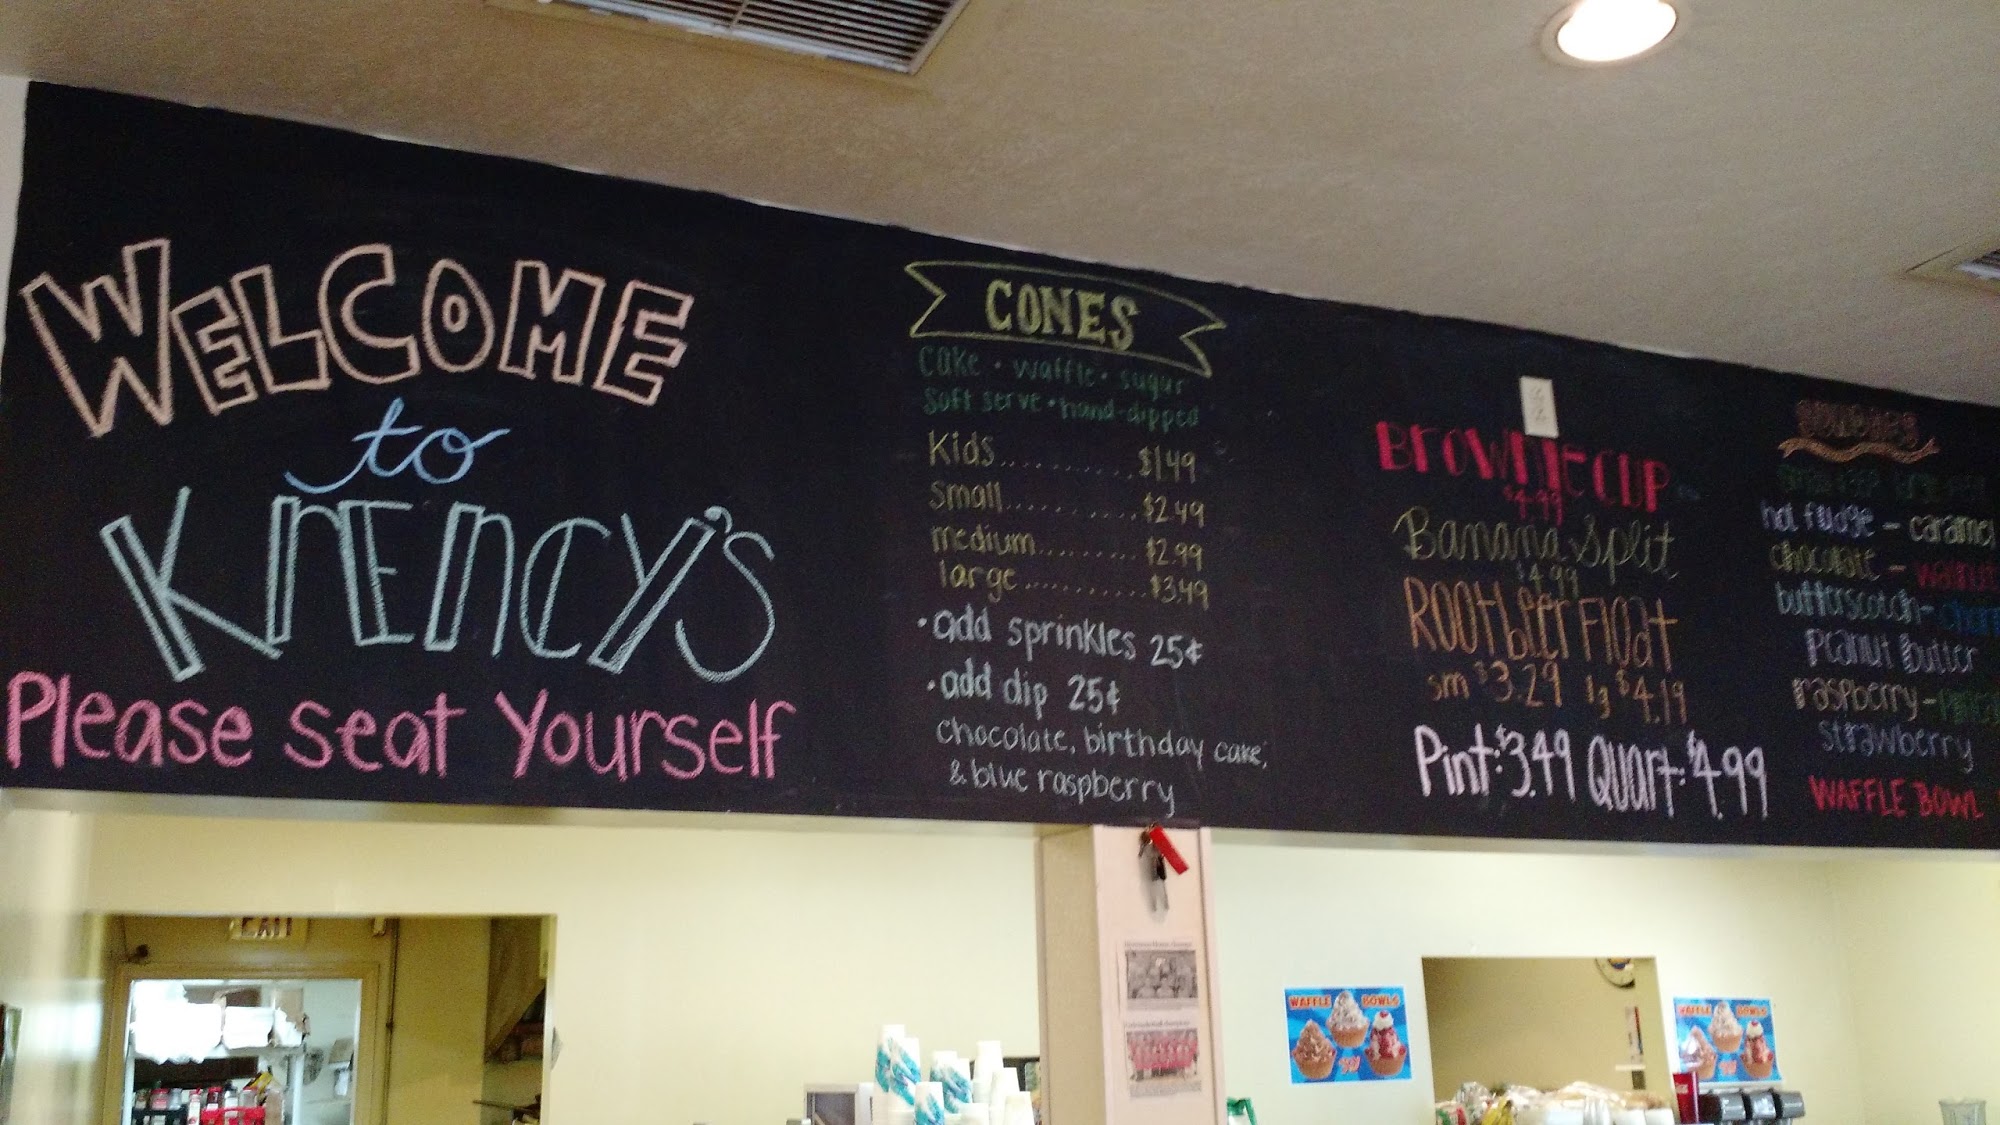 WELCOME
to
KrENCY'S
Please seat Yourself
CONES
cake • waffle • sugar
soft serve • hand-dipped
Kids.............$1.49
small.............$2.49
medium.........$2.99
large.............$3.49
•add sprinkles 25¢
•add dip 25¢
chocolate, birthday cake,
& blue raspberry
BROWNIE CUP
$4.99
Banana Split
$4.99
ROOTbEEr FLOAT
sm $3.29 lg $4.19
Pint: $3.49 Quart: $4.99
SUNDAES
hot fudge - caramel
chocolate - walnut
butterscotch-
Peanut Butter
raspberry -
strawberry
WAFFLE BOWL
EXIT
WAFFLE BOWLS
WAFFLE BOWLS